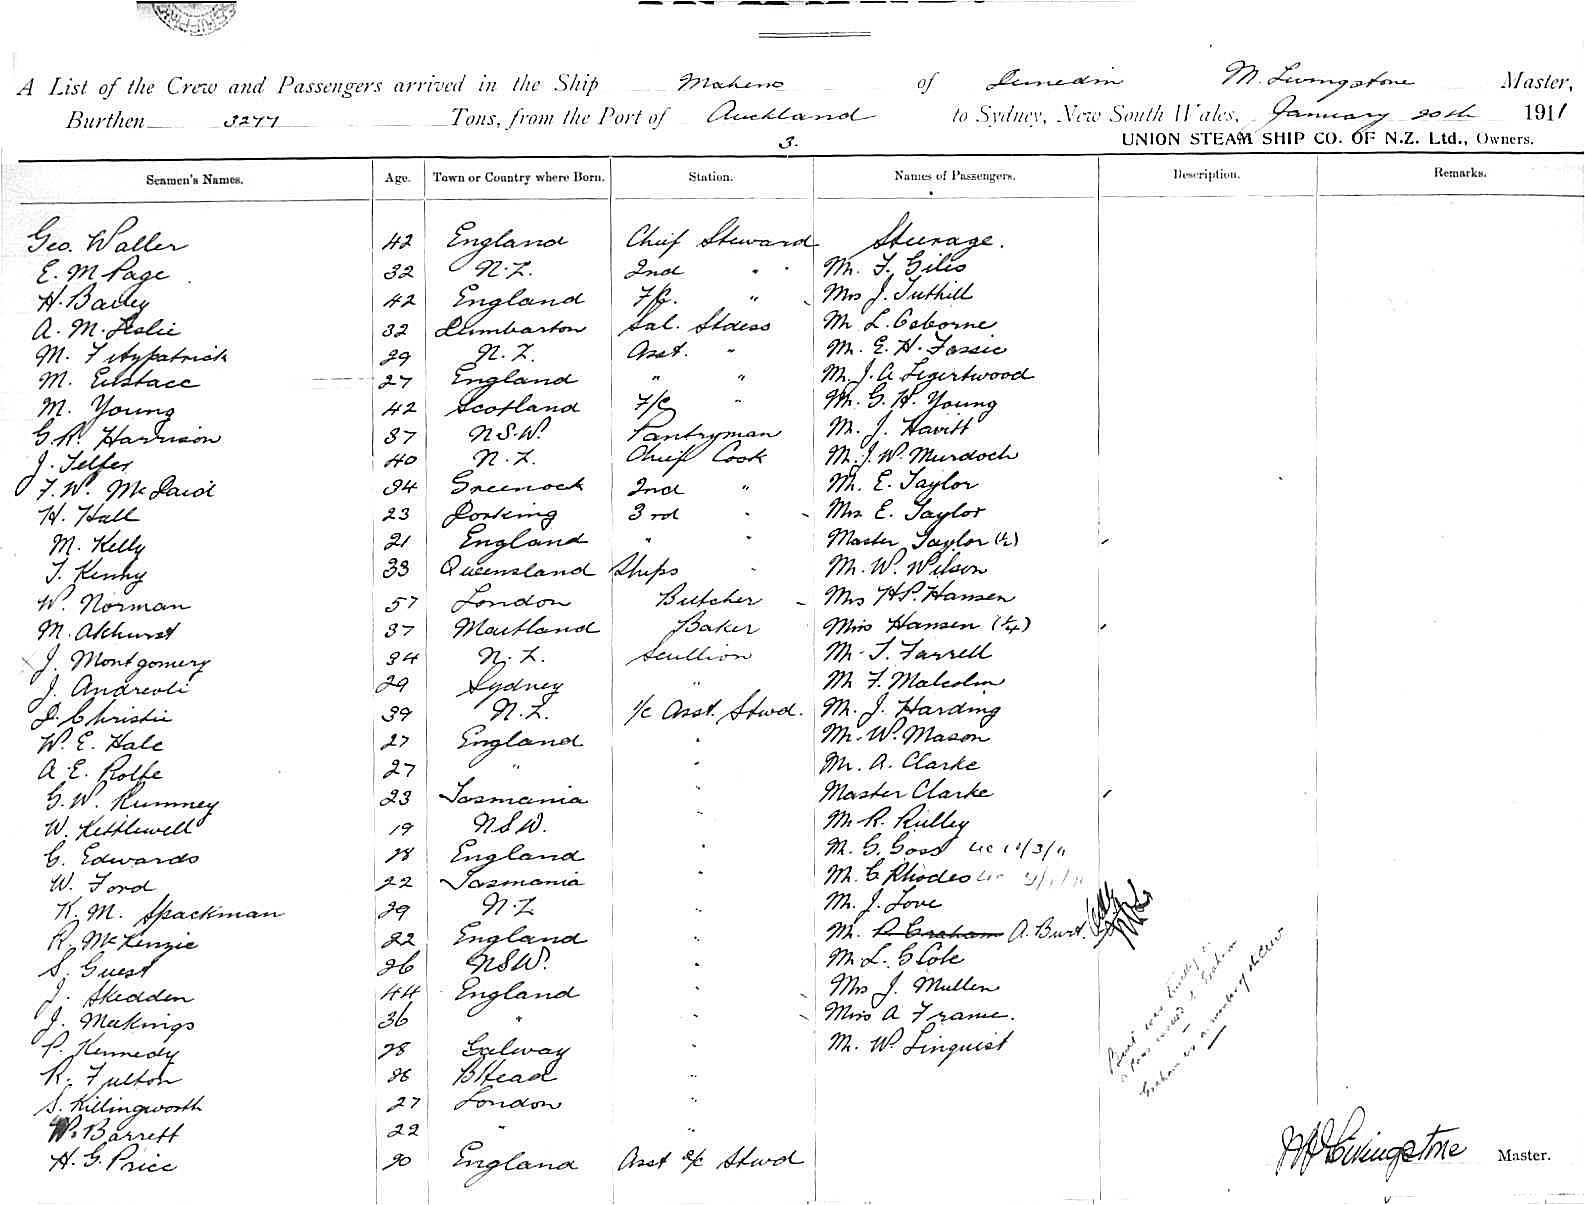 A List of the Crew and Passengers arrived in the Ship Maheno of Dunedin M. Livingstone Master,
Burthen 3277 Tons, from the Port of Auckland to Sydney, New South Wales, January 20th 1911
3. UNION STEAM SHIP CO. OF N.Z. Ltd., Owners.
Seamen's Names. Age. Town or Country where Born. Station. Names of Passengers. Description. Remarks.
Geo. Waller 42 England Chief Steward Steerage.
E. M Page 32 N.Z. 2nd " Mr. F. Giles
H. Bailey 42 England F/C. " Mrs J. Tuthill
A. M. Leslie 32 Dumbarton Sal. Stdess Mr L. Osborne
M. Fitzpatrick 29 N.Z. Asst. " Mr. E. H. Fassie
M. Eustace 27 England " " Mr. J. A Legertwood
M. Young 42 Scotland F/C " Mr. G. H. Young
G. R. Harrison 37 N.S.W. Pantryman Mr. J. Havitt
J. Telfer 40 N.Z. Chief Cook Mr. J. W. Murdoch
F. W. McDaid 34 Greenock 2nd " Mr. E. Taylor
H. Hall 23 Dorking 3rd " Mrs E. Taylor
M. Kelly 21 England " " Master Taylor (½)
T. Kenny 33 Queensland Ships " Mr. W. Wilson
W. Norman 57 London Butcher Mrs H.P. Hansen
M. Akhurst 37 Maitland Baker Miss Hansen (¼)
J. Montgomery 34 N.Z. Scullion Mr. T. Farrell
J. Andreoli 29 Sydney " Mr F. Malcolm
D. Christie 39 N.Z. 1/c Asst. Stwd. Mr. J. Harding
W. E. Hale 27 England " Mr. W. Mason
A. E. Rolfe 27 " " Mr. A. Clarke
G. W. Rumney 23 Tasmania " Master Clarke
W. Kettlewell 19 N.S.W. " Mr R. Rulley
C. Edwards 28 England " Mr. G. Goss
W. Ford 22 Tasmania " Mr. C. Rhodes
K. M. Spackman 29 N.Z " Mr. J. Love
R. McKenzie 22 England " Mr. R Graham A. Burt.
S. Guest 26 NSW. " Mr L. G Cole
J. Skedden 44 England " Mrs J. Mullen
J. Makings 36 " " Miss A Frame.
P. Kennedy 28 Galway " Mr. W. Linquist
R. Fulton 26 B'Head "
S. Killingworth 27 London "
W. Barrett 22 " "
H. G. Price 20 England Asst 2/c Stwd
Graham as a member of the crew
Livingstone Master.